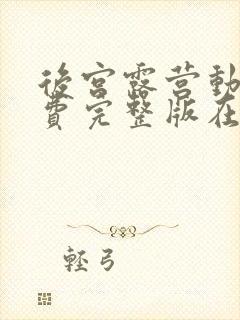 後宮露营動
費完整版在
輕弓